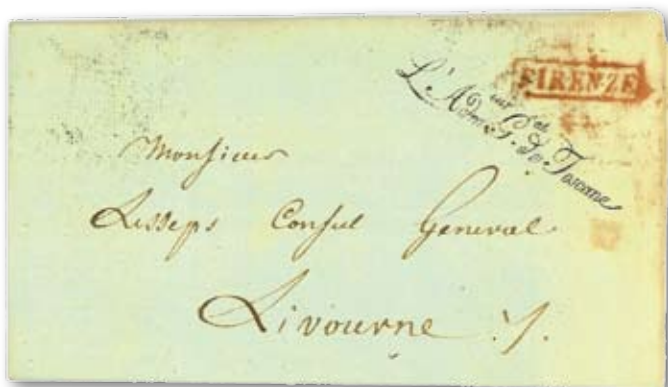 FIRENZE
L'Adm.eur G.al de Toscane
Monsieur
Lesseps Consul General
Livourne ./.